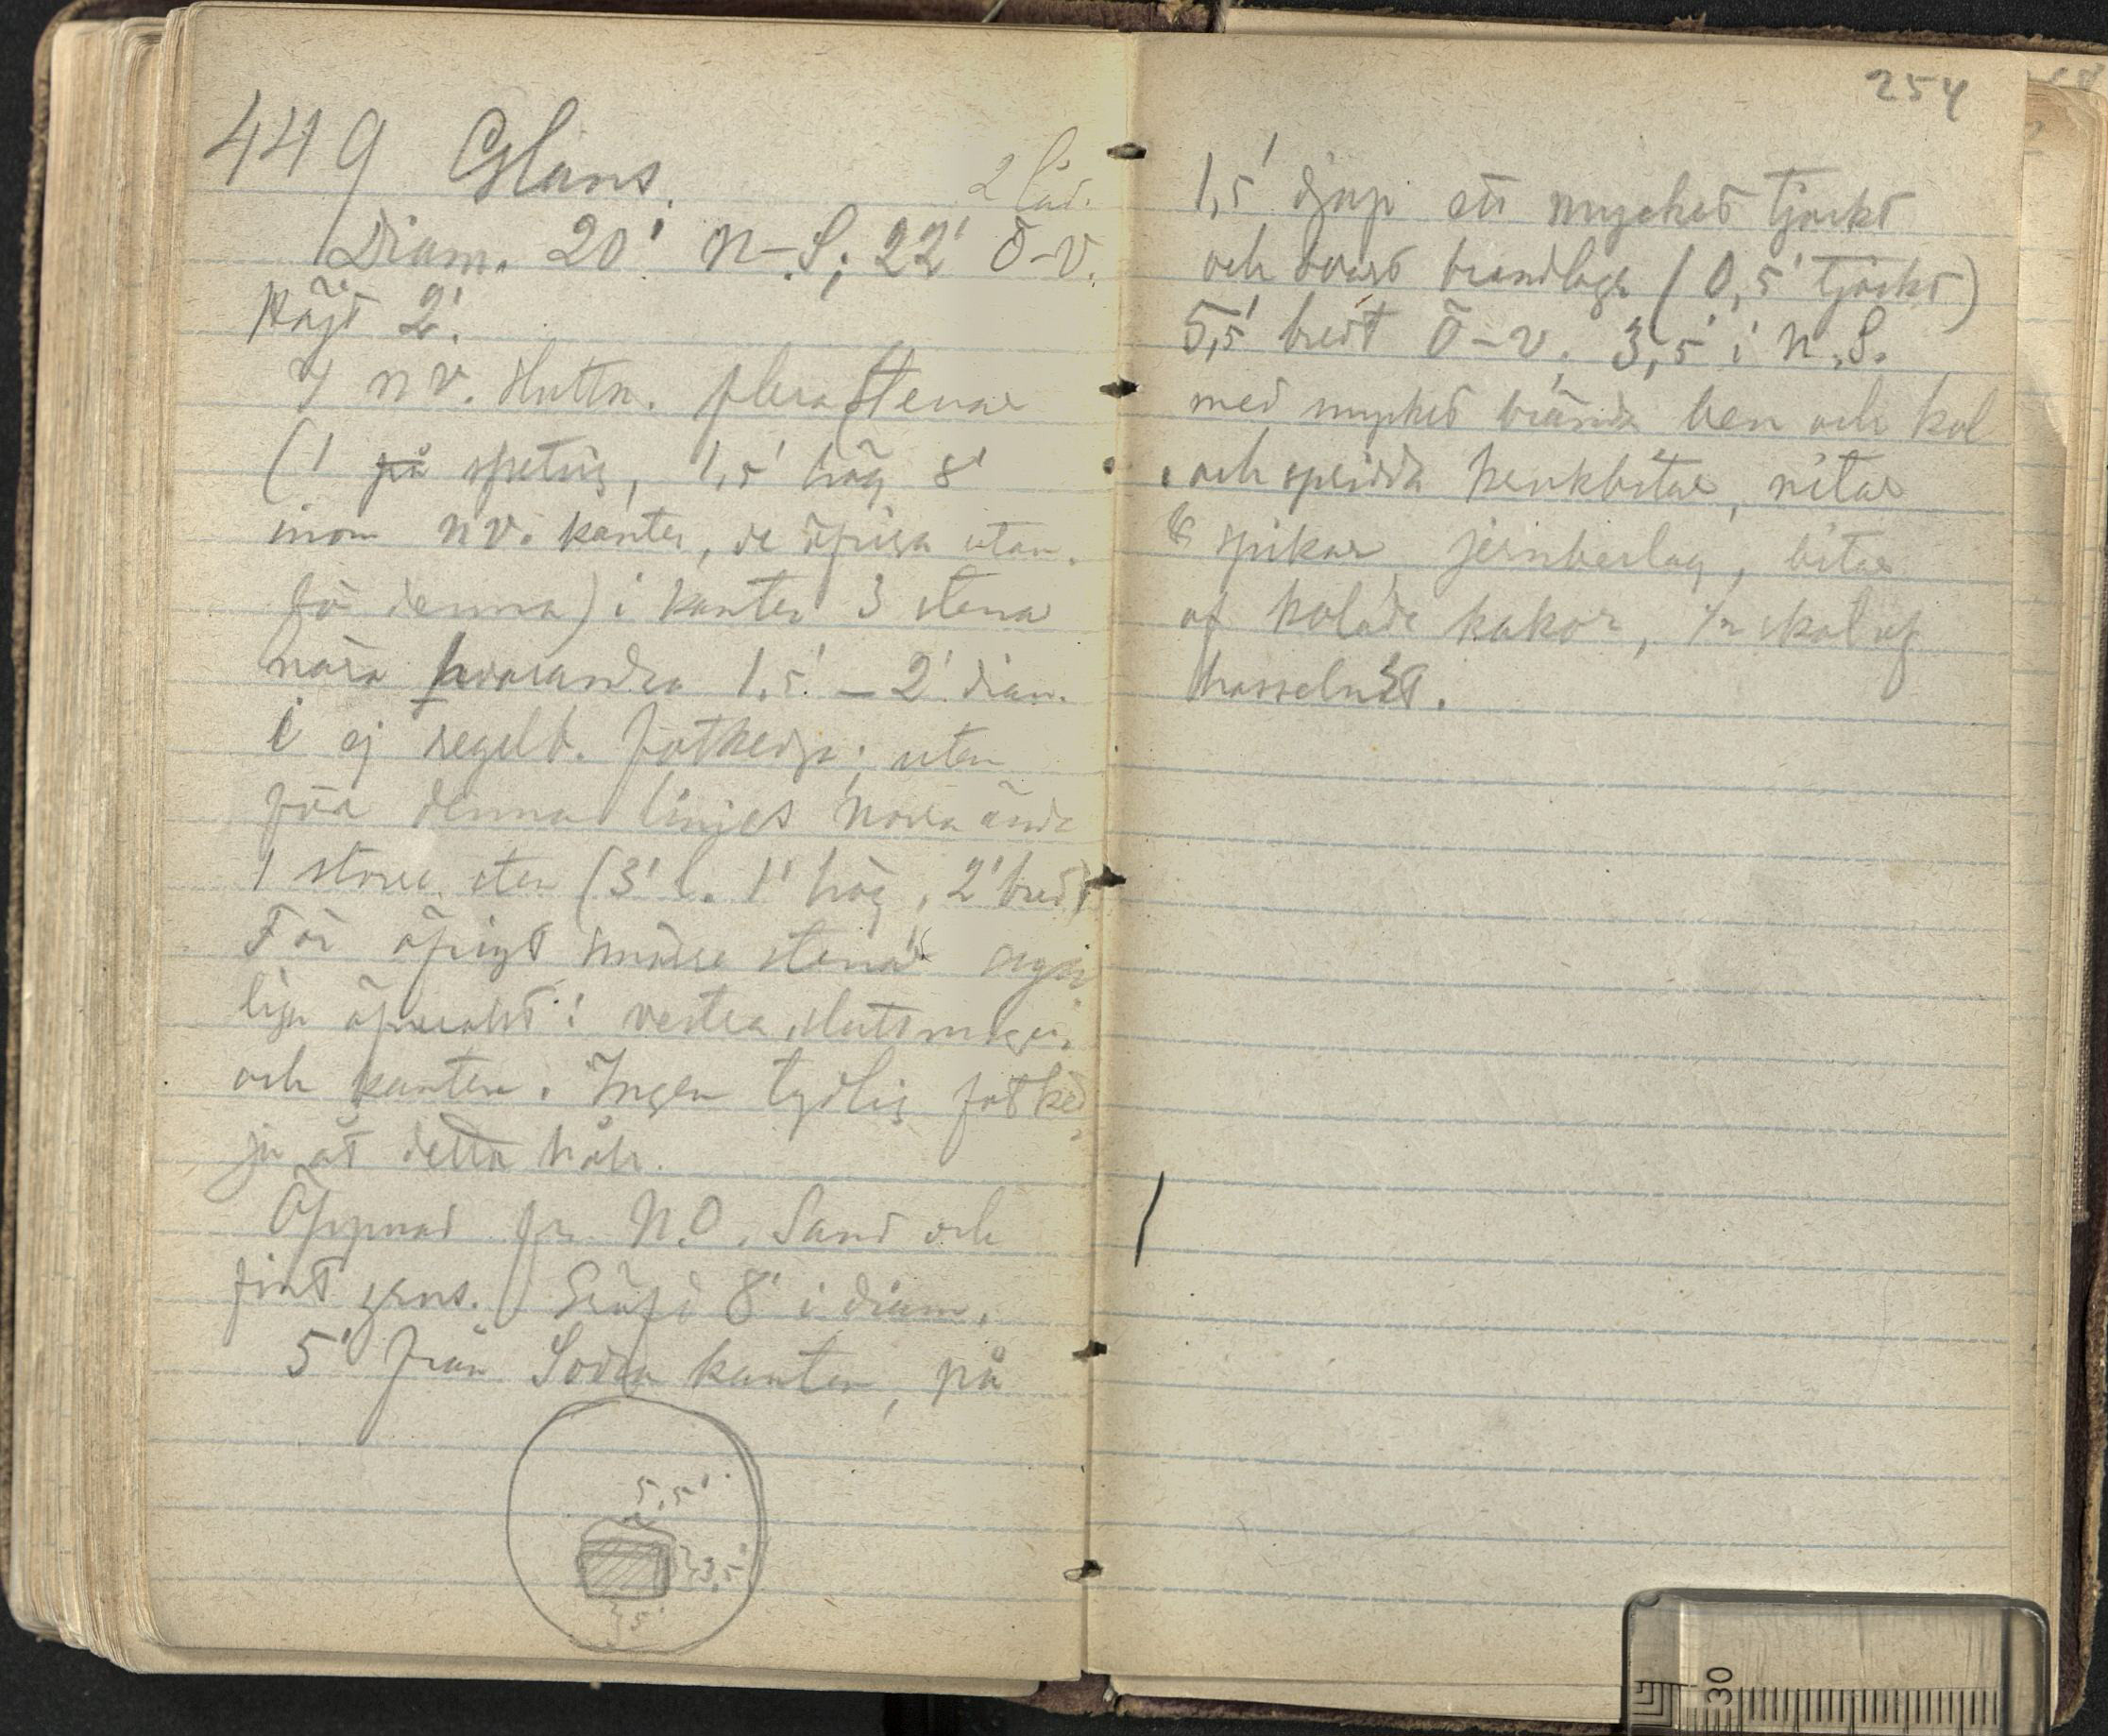 449 Glans.
2 låd.
Diam. 20' N-S; 22' Ö-V.
Höjd 2'.
I NV. Sluttn. flera stenar
(1 på spetsig, 1,5' hög 8'
inom NV. kanten, de öfriga utan-
för denna) i kanten 3 stenar
nära hvarandra 1,5' - 2' diam.
i ej regelb. fotkedja; utan
för denna linjes norra ända
1 större sten (3' l. 1' hög, 2' bred)
För öfrigt smärre stenar
öfverallt i vestra sluttningen
och kanten. Ingen tydlig fotked-
ja åt detta håll.
Öppnad fr. N.O. Sand och
fint grus. Gröfd 8' i diam.
5' från Södra kanten, på
5,5'
3,5'
5'
254
1,5' djup ett mycket tjockt
och svart brandlager (0,5' tjockt)
5,5' bredt Ö-V. 3,5' i N.S.
med mycket brända ben och kol
och spridda krukbitar, nitar
& spikar jernbeslag, bitar
af kolade kakor, 1/2 skal af
hasselnöt.
30